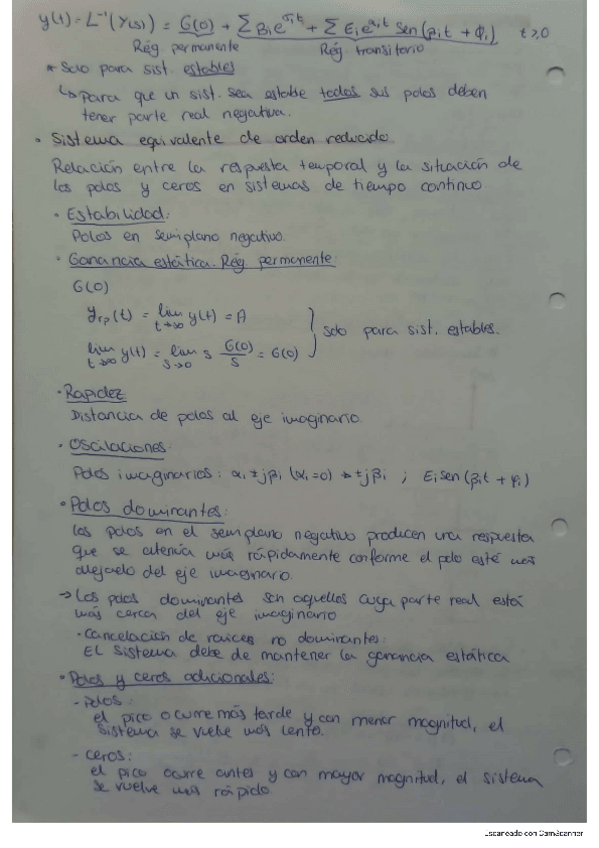 y(t) = L⁻¹(Y(s)) = G(0) + Σ Bᵢe^σᵢt + Σ Eᵢe^αᵢt sen(βᵢt + φᵢ) t≥0
Rég. permanente Rég. transitorio
* Solo para sist. estables
↳ Para que un sist. sea estable todos sus polos deben
tener parte real negativa.
• Sistema equivalente de orden reducido.
Relación entre la respuesta temporal y la situación de
los polos y ceros en sistemas de tiempo continuo.
• Estabilidad:
Polos en semiplano negativo.
• Ganancia estática. Rég. permanente:
G(0)
y_rp(t) = lim t→∞ y(t) = A
solo para sist. estables.
lim t→∞ y(t) = lim s→0 s G(0)/s = G(0)
• Rapidez
Distancia de polos al eje imaginario.
• Oscilaciones:
Polos imaginarios: αᵢ ± jβᵢ (αᵢ=0) → ±jβᵢ ; Eᵢ sen(βᵢt + φᵢ)
• Polos dominantes:
los polos en el semiplano negativo producen una respuesta
que se atenúa más rápidamente conforme el polo esté más
alejado del eje imaginario.
→ Los polos dominantes son aquellos cuya parte real está
más cerca del eje imaginario
• Cancelación de raíces no dominantes:
El sistema debe de mantener la ganancia estática
• Polos y ceros adicionales:
- Polos:
el pico ocurre más tarde y con menor magnitud, el
sistema se vuelve más lento.
- Ceros:
el pico ocurre antes y con mayor magnitud, el sistema
se vuelve más rápido.
Escaneado con CamScanner